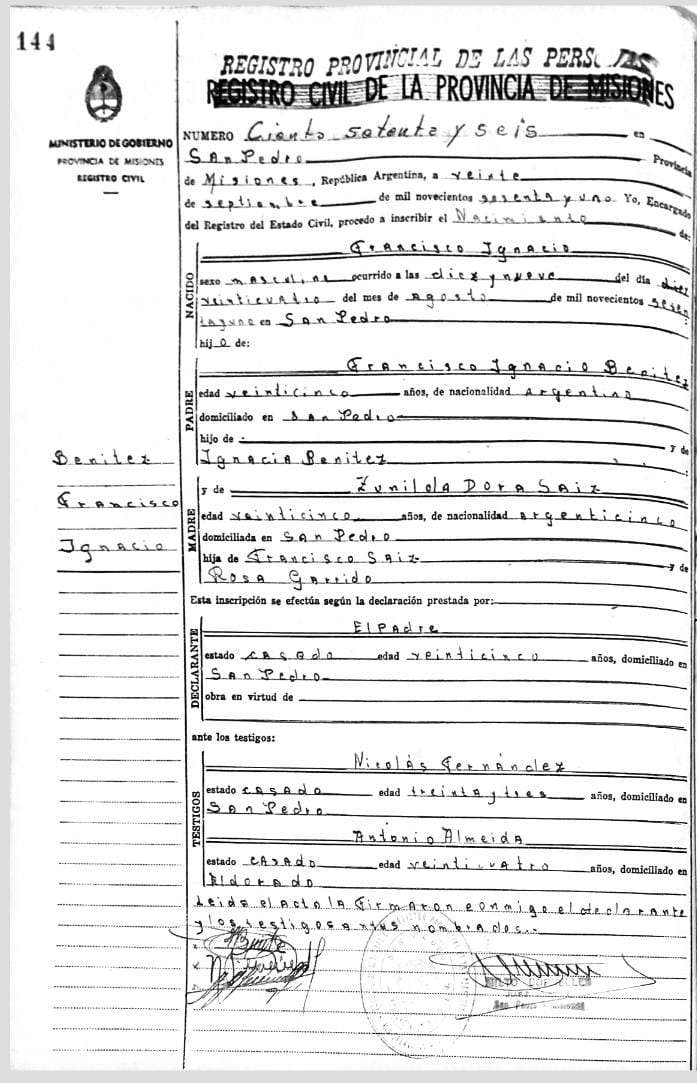 144
MINISTERIO DE GOBIERNO
PROVINCIA DE MISIONES
REGISTRO CIVIL
REGISTRO PROVINCIAL DE LAS PERSONAS
REGISTRO CIVIL DE LA PROVINCIA DE MISIONES
NUMERO Ciento setenta y seis en
San Pedro Provincia
de Misiones, República Argentina, a veinte
de septiembre de mil novecientos sesenta y uno Yo, Encargado
del Registro del Estado Civil, procedo a inscribir el Nacimiento de:
NACIDO
Francisco Ignacio
sexo masculino ocurrido a las diez y nueve del día diez
veinticuatro del mes de agosto de mil novecientos sesen
tayuno en San Pedro :
hijo de:
PADRE
Francisco Ignacio Benitez
edad veinticinco años, de nacionalidad argentino
domiciliado en San Pedro
hijo de - y de
Ignacia Benitez :
Benitez
Francisco
Ignacio
MADRE
y de Zunilda Dora Saiz
edad veinticinco años, de nacionalidad argenticinco
domiciliada en San Pedro
hija de Francisco Saiz y de
Rosa Garrido
Esta inscripción se efectúa según la declaración prestada por:
DECLARANTE
El Padre
estado casado edad veinticinco años, domiciliado en
San Pedro
obra en virtud de
ante los testigos:
TESTIGOS
Nicolás Fernández
estado casado edad treinta y tres años, domiciliado en
San Pedro
Antonio Almeida
estado casado edad veinticuatro años, domiciliado en
Eldorado
Leida el acta la firmaron conmigo el declarante
y los testigos antes nombrados.
JUEZ
San Pedro - Misiones